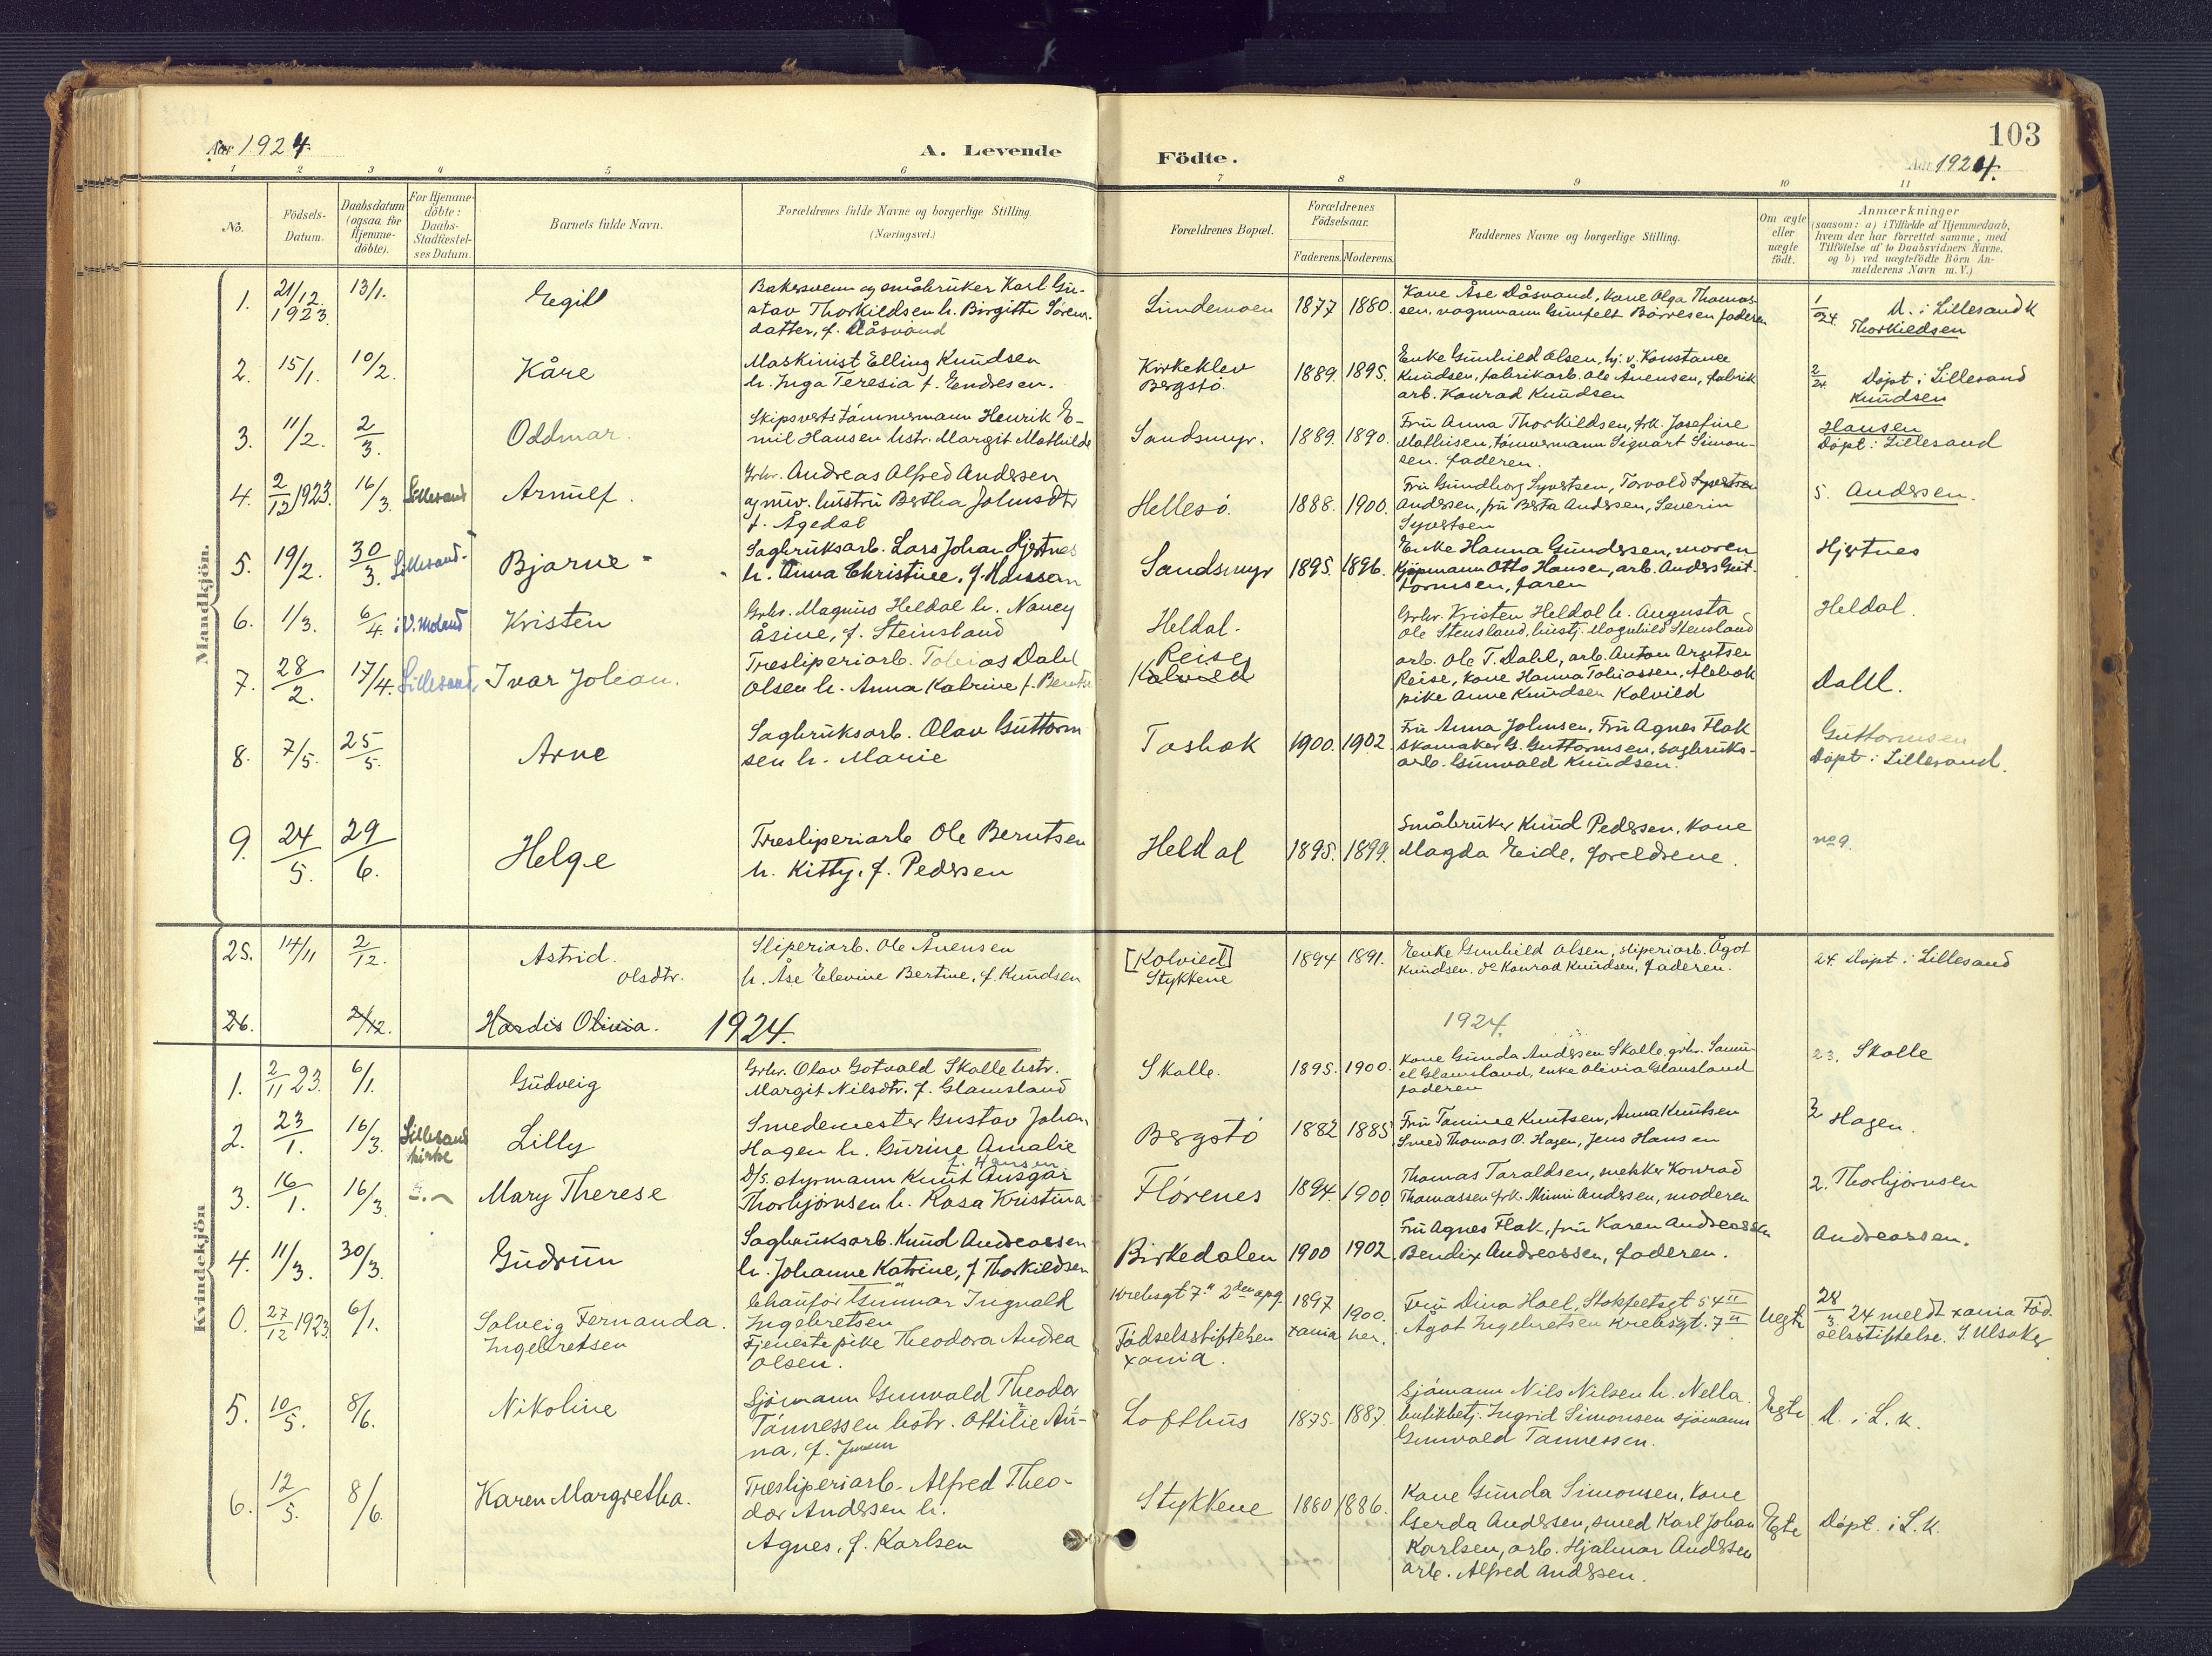 Aar 1924
A. Levende
Födte.
103
Aar 1924.
1 2 3 4 5 6 7 8 9 10 11
No.
Födsels-
Datum.
Daabsdatum
(ogsaa for
Hjemme-
döbte).
For Hjemme-
döbte:
Daabs-
Stadfæstel-
ses Datum.
Barnets fulde Navn.
Forældrenes fulde Navne og borgerlige Stilling.
(Næringsvei.)
Forældrenes Bopæl.
Forældrenes
Födselsaar.
Faderens. Moderens.
Faddernes Navne og borgerlige Stilling.
Om ægte
eller
uægte
födt.
Anmærkninger
(saasom: a) i Tilfælde af Hjemmedaab,
hvem der har forrettet samme, med
Tilföielse af to Daabsvidners Navne,
og b) ved uægtefödte Börn An-
melderens Navn m. V.)
Mandkjön.
1. 21/12 1923. 13/1. Egill
Bakersvenn og småbruker Karl Gu-
stav Thorkildsen h. Birgitte Sörens-
datter, f. Dåsvand
Lindemoen 1877 1880.
Kone Åse Dåsvand, kone Olga Thomas-
sen. vognmann Gunfelt Börresen faderen
1/24. D. i Lillesand K
Thorkildsen
2. 15/1. 10/2. Kåre
Maskinist Elling Knudsen
h. Inga Teresia f. Endresen.
Kirkeklev
Bergstö.
1889. 1895.
Enke Gunhild Olsen, hj. v. Konstance
Knudsen, fabrikarb. Ole Ånensen, fabrik
arb. Konrad Knudsen
2/24. Döpt i Lillesand
Knudsen
3. 11/2. 2/3. Oddmar.
Skipsverftstömmermann Henrik E-
mil Hansen hstr. Margit Mathilde
Sandsmyr. 1889. 1890.
Fru Anna Thorkildsen, frk. Josefine
Mathisen, tömmermann Sigvart Simon-
sen. faderen.
Hansen
Döpt i Lillesand
4. 2/12 1923. 16/3. Lillesand Arnulf.
Grbr. Andreas Alfred Andersen
og nuv. hustru Bertha Johnsdtr
f. Ågedal
Hellesö. 1888. 1900.
Fru Gundborg Syvertsen, Torvald Syvertsen
Andersen, fru Berta Andersen, Severin
Syvertsen
5. Andersen.
5. 19/2. 30/3. Lillesand Bjarne
Sagbruksarb. Lars Johan Hjertnes
h. Anna Christine, f. Hansson
Sandsmyr 1895. 1896.
Enke Hanna Gundersen, moren
Kjöpmann Otto Hansen, arb. Anders Gut-
tormsen, faren
Hjertnes
6. 1/3. 6/4. i V. Moland Kristen
Grbr. Magnus Heldal h. Nancy
Åsine, f. Steinsland
Heldal.
Grbr. Kristen Heldal h. Augusta
Ole Stensland, hustj. Magnhild Stensland
Heldal.
7. 28/2. 17/4. Lillesand. Ivar Johan.
Tresliperiarb. Tobias Dahl
Olsen h. Anna Katrine f. Berntsen
Reise
Kolvild
arb. Ole T. Dahl, arb. Anton Arntsen
Reise, kone Hanna Tobiassen,
pike Anne Knudsen Kolvild
Dahl.
8. 7/5. 25/5. Arne
Sagbruksarb. Olav Guttorm
sen h. Marie
Tosbæk 1900. 1902.
Fru Anna Johnsen, Fru Agnes Flak
Skomaker G. Guttormsen, sagbruks-
arb. Gunvald Knudsen.
Guttormsen
Döpt i Lillesand.
9. 24/5. 29/6. Helge
Tresliperiarb Ole Berntsen
h. Kitty, f. Pedersen
Heldal 1895. 1899.
Småbruker Knud Pedersen, kone
Magda Eide, foreldrene.
no 9.
25. 14/11 2/12. Astrid.
Olsdtr.
Sliperiarb. Ole Ånensen
h. Åse Elevine Bertine, f. Knudsen
[Kolvied]
Stykkene
1894 1891.
Enke Gunhild Olsen, sliperiarb. Ågot
Knudsen. do Konrad Knudsen, faderen.
24. Döpt i Lillesand
26. 21/12. Hardis Olivia. 1924.
1924.
Kvindekjön
1. 2/11 23. 6/1. Gudveig
Grbr. Olav Gotvald Skalle hstr.
Margit Nilsdtr. f. Glamsland
Skalle. 1895. 1900.
Kone Gunda Andersen Skalle, grbr. Samu-
el Glamsland, enke Olivia Glamsland
faderen
23. Skalle
2. 23/1. 16/3. Lillesand
kirke
Lilly
Smedemester Gustav Johan
Hagen h. Gurine Amalie
f. Hansen
Bergstö 1882 1885
Fru Tomine Knutsen, Anna Knutsen
Smed Thomas O. Hagen, Jens Hansen
3 Hagen.
3. 16/1. 16/3. Mary Therese
D/S. styrmann Knut Ansgar
Thorbjörnsen h. Rosa Kristina
Flörenes 1894. 1900
Thomas Taraldsen, snekker Konrad
Thomassen frk. Mimi Andersen, moderen
2. Thorbjörnsen
4. 11/3. 30/3. Gudrun
Sagbruksarb. Knud Andreassen
h. Johanne Katrine, f. Thorkildsen
Birkedalen 1900 1902.
Fru Agnes Flak, fru Karen Andreassen
Bendix Andreassen, faderen.
Andreassen.
0. 27/12 1923. 6/1. Solveig Fernanda.
Ingebretsen
Chauför Gunnar Ingvald
Ingebretsen
Tjenestepike Theodora Andrea
Olsen.
Krebsgt 7" 2den opg.
Födselsstiftelsen
xania.
1897 1900.
xania her.
Fru Dina Hoel, Stokfletsgt 54 II
Ågot Ingebretsen Krebsgt. 7 II
Uegte
28/3 24 meldt xania Föd.
selsstiftelse. I. Ulsaker
5. 10/5. 8/6. Nikoline
Sjömann Gunvald Theodor
Tönnessen hstr. Ottilie An-
na, f. Jensen
Lofthus 1875. 1887.
Sjömann Nils Nilsen h. Nella.
butikkbetj. Ingrid Simonsen sjömann
Gunvald Tönnessen.
Egte
D. i L. K.
6. 12/5. 8/6. Karen Margretha.
Tresliperiarb. Alfred Theo-
dor Andersen h.
Agnes, f. Karlsen
Stykkene 1880 1886.
Kone Gunda Simonsen, kone
Gerda Andersen, smed Karl Johan
Karlsen, arb. Hjalmar Andersen
arb. Alfred Andersen.
Egte
Döpt. i L. K.